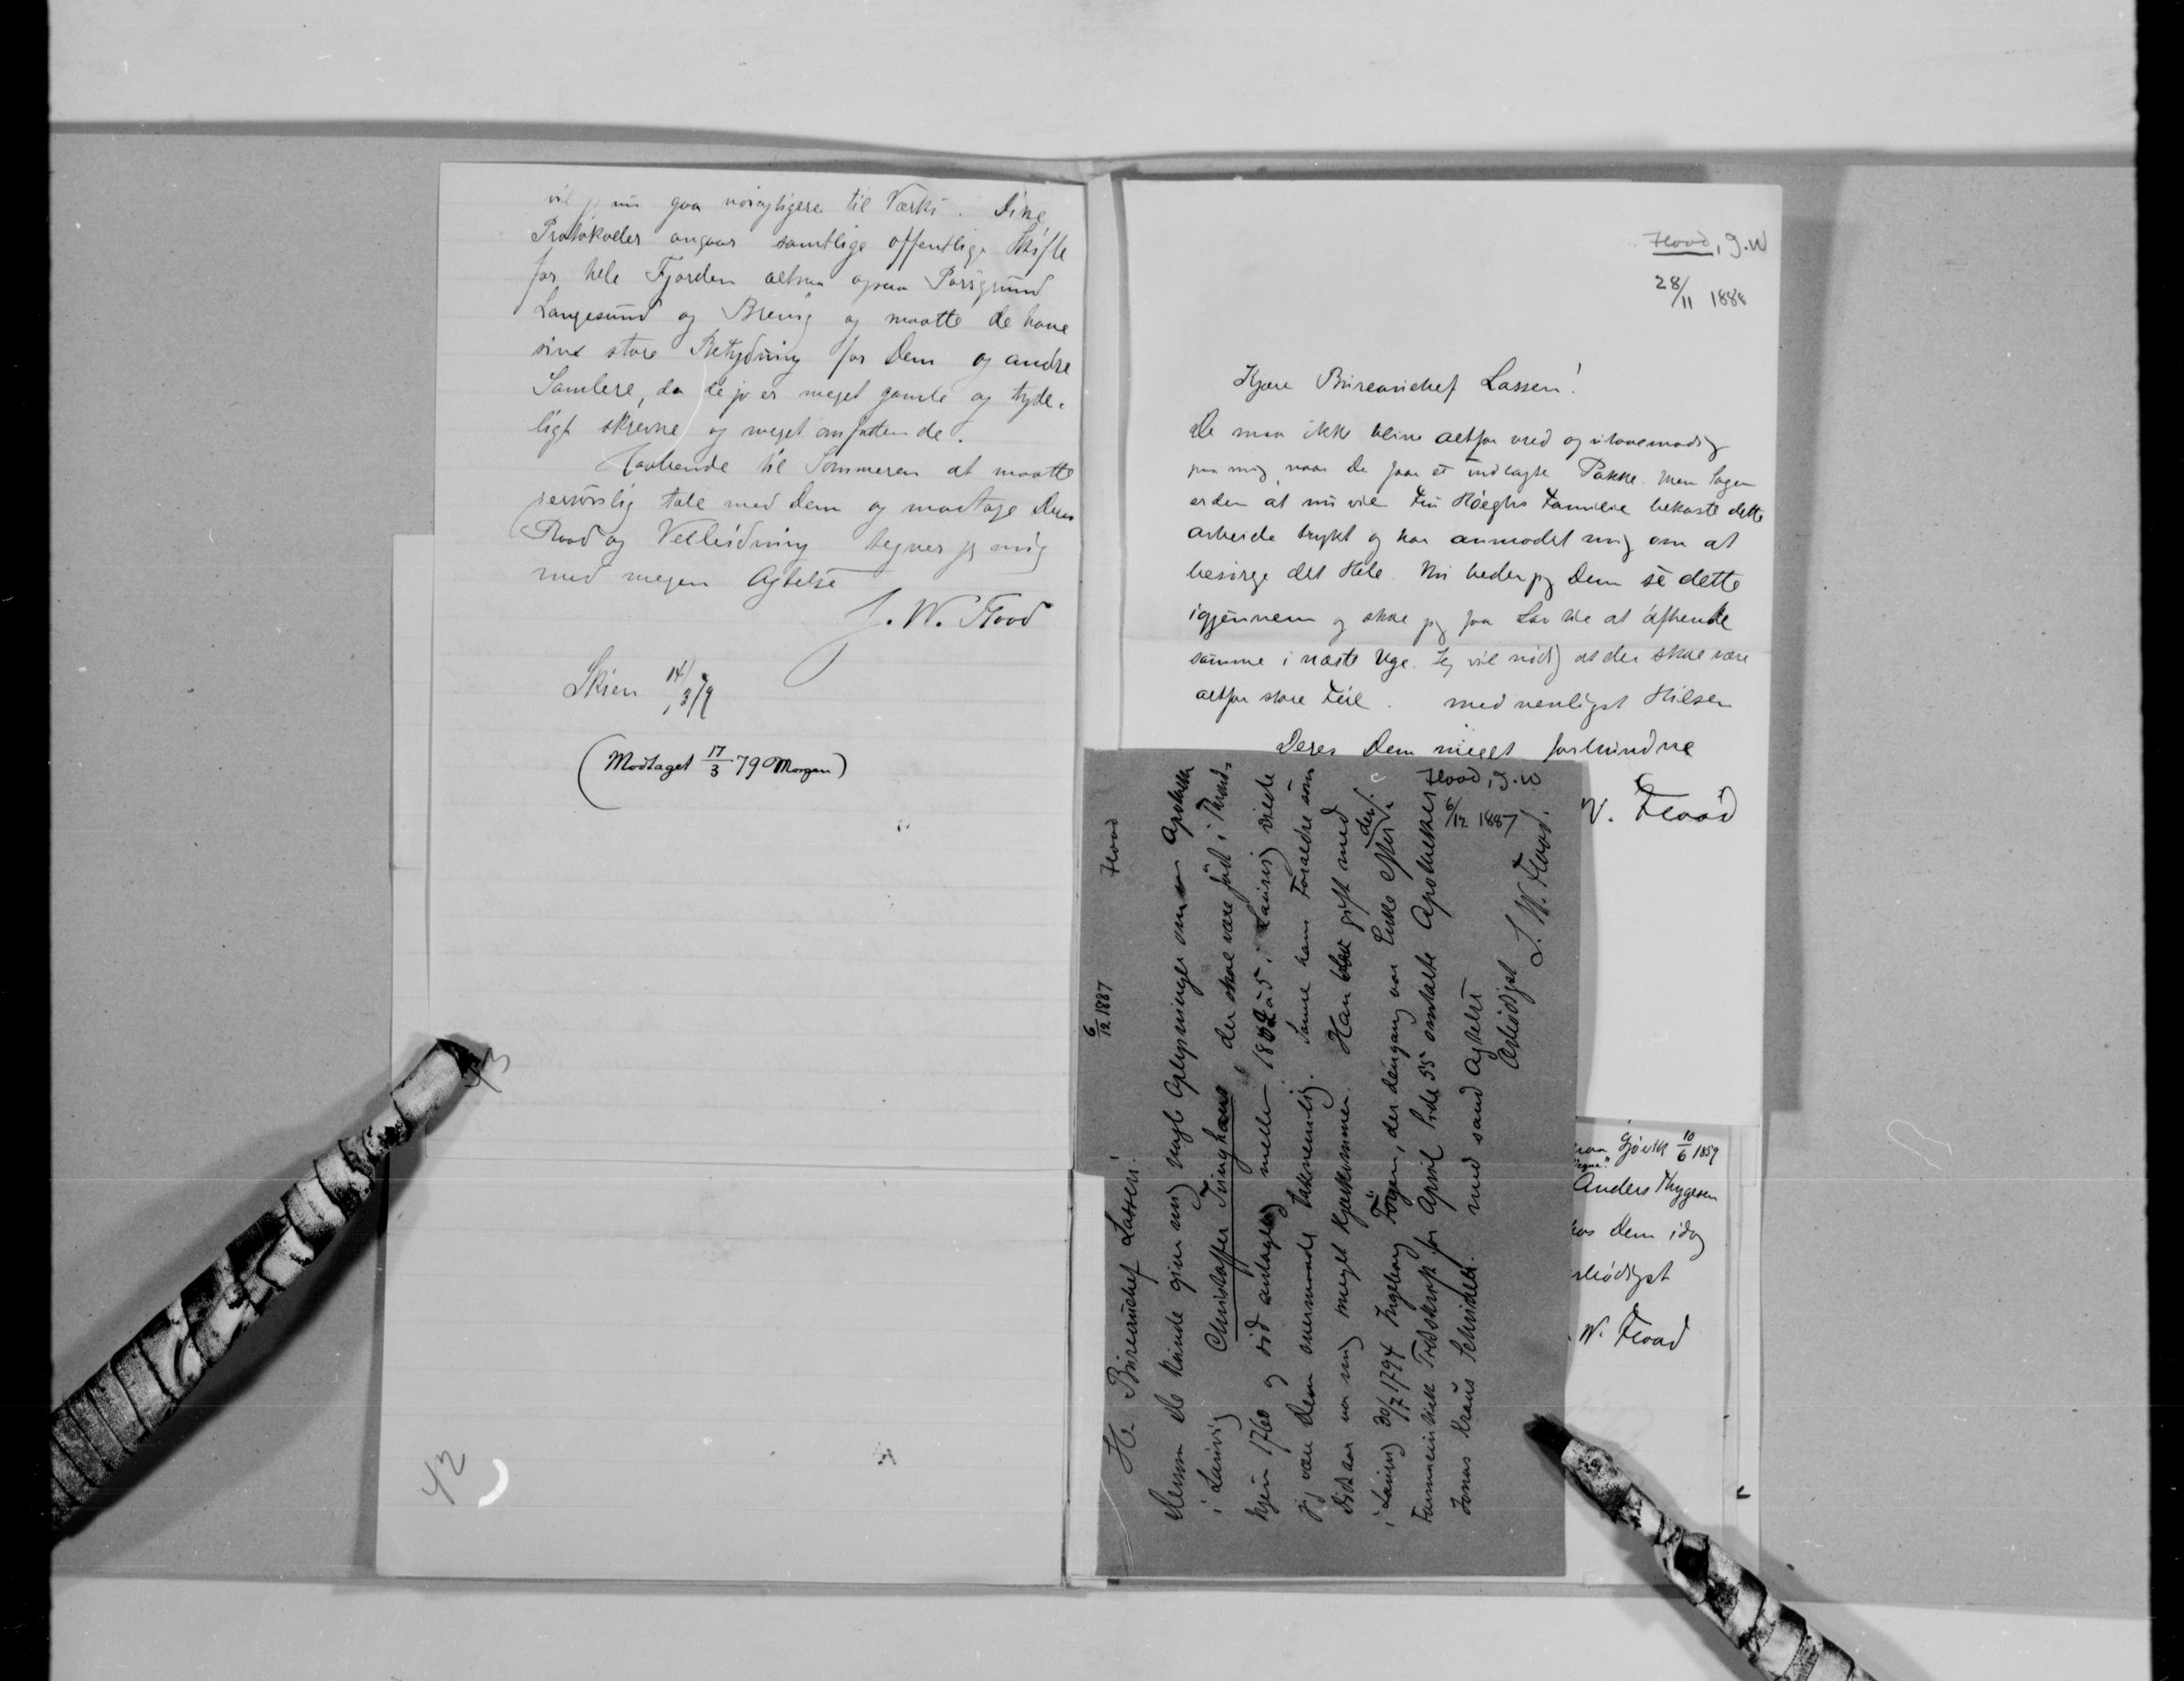 vil jeg nu gaa nøiagtigere til Værks. Disse
Protokoller angaar samtlige offentlige Skifte
for hele Fjorden altsaa ogsaa Porsgrund
Langesund og Brevig og maatte de have
sin store Betydning for Dem og andre
Samlere, da de jo er meget gamle og tyde-
ligt skrevne og meget omfattende.
Haabende til Sommeren at maatte
personlig tale med Dem og modtage Deres
Raad og Veiledning tegner jeg mig
med megen Agtelse
J. W. Flood
Skien 14/3 79
(Modtaget 17/3 79 Morgen)
43
42
Flood, J.W
28/11 1888
Kjære Bureauchef Lassen!
De maa ikke blive altfor vred og utaalmodig
paa mig, naar De faar et indlagte Pakke. Men Sagen
er den at nu vil Fru Høeghs Familie bekoste dette
arbeide trykt og har anmodet mig om at
besørge det Hele. Nu beder jeg Dem se dette
igjennem og skal jeg faa Lov til at afhente
samme i næste Uge. Jeg vil nødig at der skal være
altfor store Feil. med venligst Hilsen
Deres Dem meget forbundne
W. Flood
6/12 1887 Flood
Flood, J.W
6/12 1887
Hr. Bureauchef Lassen!
Dersom De kunde give mig nogle Oplysninger om en Apotheker
i Laurvig Christoffer Tinghaus, der skal være født i Thrond-
hjem 1760 og død antagelig mellem 1802 à 5 i Laurvig vilde
jeg være Dem overmaade taknemlig. Samme hans Forældre som
Data var mig meget kjærkommen. Han blev gift med
i Laurvig 30/7 1794 Ingeborg Føyen, der dengang var Enke efter den i
Farmaceutisk Tidsskrift for April Side 55 omtalte Apotheker
Jonas Kraus Schnider. med sand Agtelse
Ærbødigst
J. W. Flood.
fra Gjøvik 10/6 1859
Anders Thygesen
hos Dem idag
W. Flood